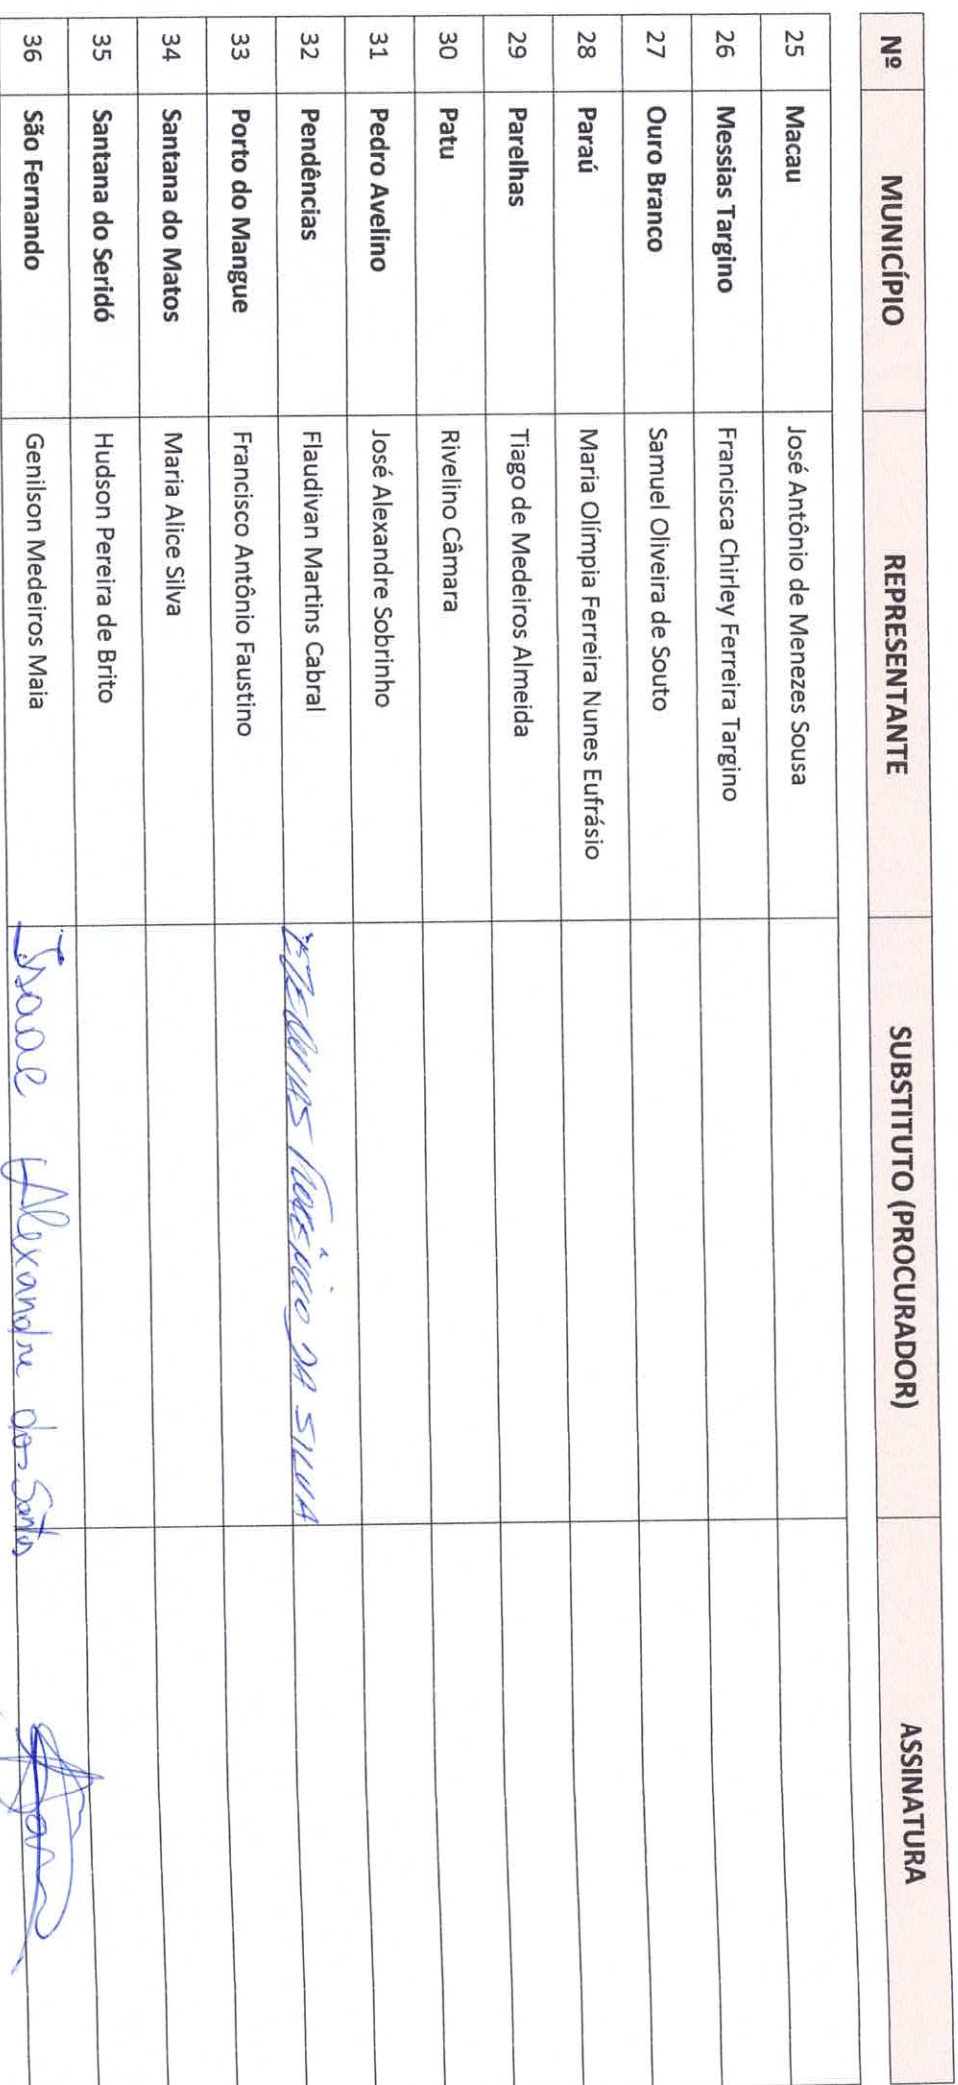 Nº MUNICÍPIO REPRESENTANTE SUBSTITUTO (PROCURADOR) ASSINATURA
25 Macau José Antônio de Menezes Sousa
26 Messias Targino Francisca Chirley Ferreira Targino
27 Ouro Branco Samuel Oliveira de Souto
28 Paraú Maria Olímpia Ferreira Nunes Eufrásio
29 Parelhas Tiago de Medeiros Almeida
30 Patu Rivelino Câmara
31 Pedro Avelino José Alexandre Sobrinho
32 Pendências Flaudivan Martins Cabral DA SILVA
33 Porto do Mangue Francisco Antônio Faustino
34 Santana do Matos Maria Alice Silva
35 Santana do Seridó Hudson Pereira de Brito
36 São Fernando Genilson Medeiros Maia Isaac Alexandre dos Santos